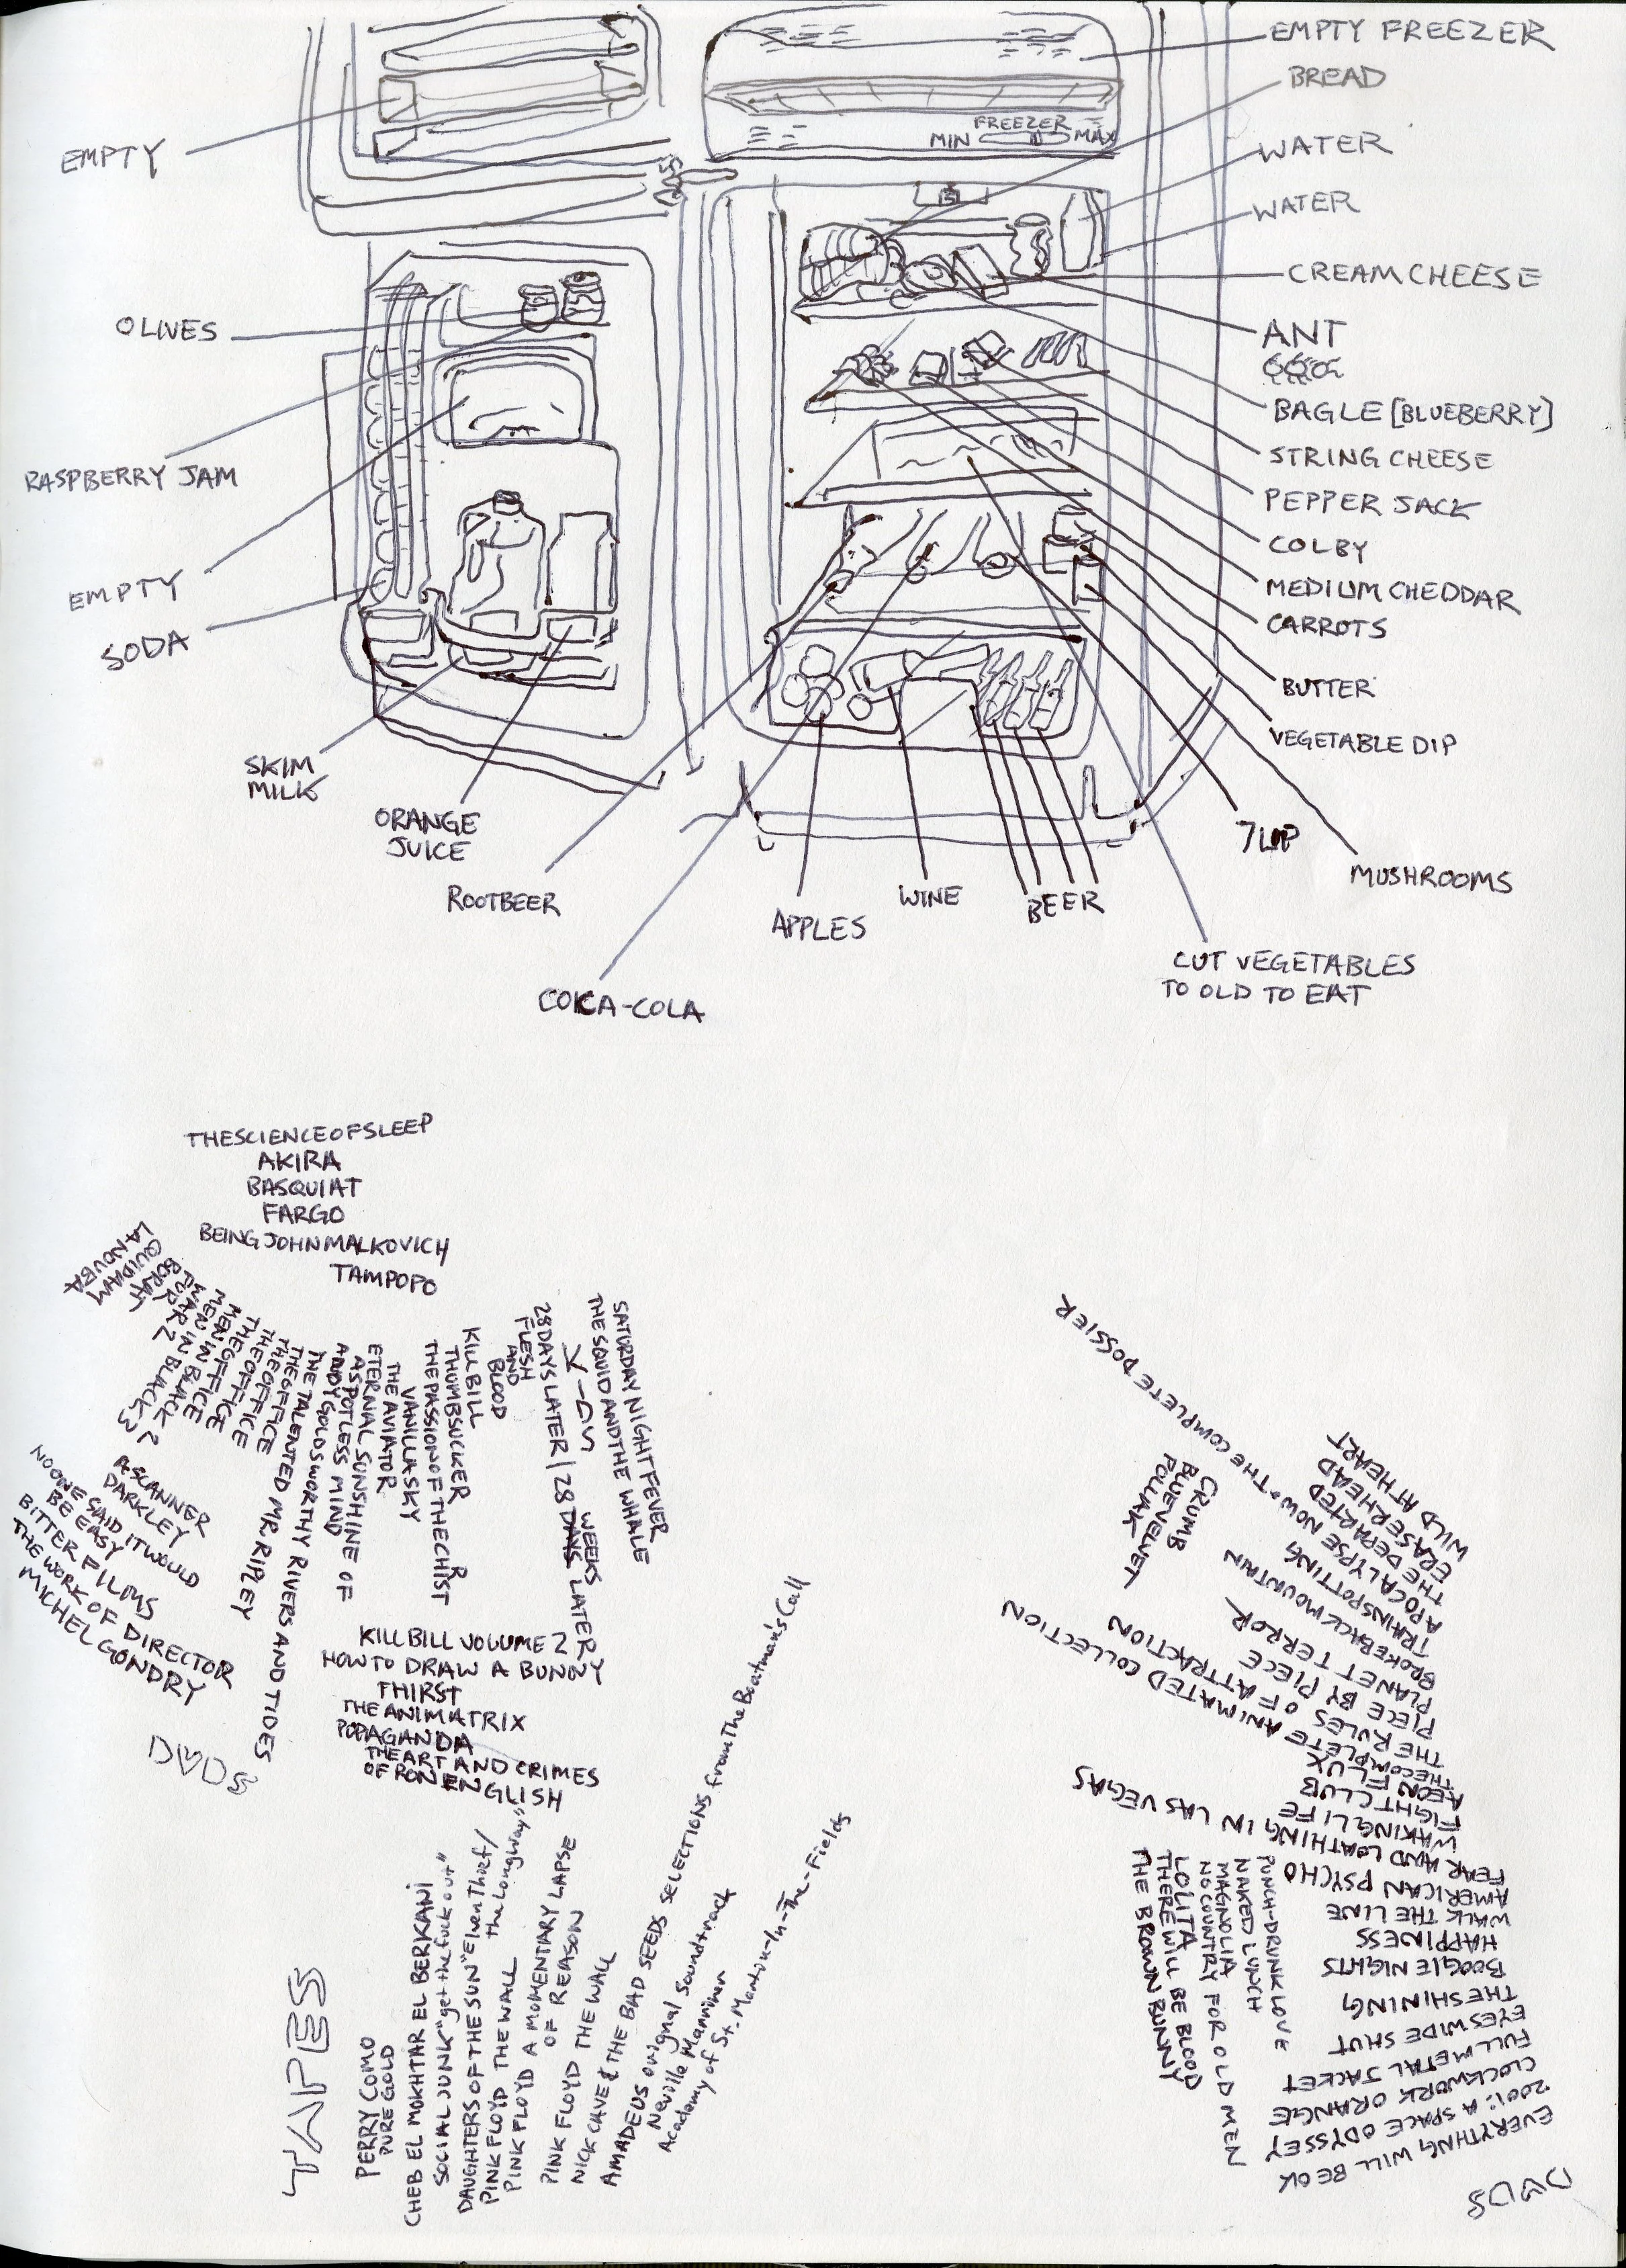 EMPTY FREEZER
BREAD
FREEZER
MIN
MAX
WATER
EMPTY
WATER
CREAM CHEESE
OLIVES
ANT
BAGLE [BLUEBERRY]
STRING CHEESE
RASPBERRY JAM
PEPPER JACK
COLBY
EMPTY
MEDIUM CHEDDAR
CARROTS
SODA
BUTTER
VEGETABLE DIP
SKIM
MILK
ORANGE
JUICE
7UP
MUSHROOMS
ROOTBEER
WINE
BEER
APPLES
CUT VEGETABLES
TO OLD TO EAT
COKCA-COLA
THE SCIENCE OF SLEEP
AKIRA
BASQUIAT
FARGO
BEING JOHN MALKOVICH
TAMPOPO
LA NOUBA
QUIDAM
BORAT
PUR
WAR 2
MEN IN BLACK 3
MEN IN BLACK 2
MEN IN BLACK
THE OFFICE
THE OFFICE
THE OFFICE
THE OFFICE
THE TALENTED MR RIPLEY
ANDY GOLDSWORTHY RIVERS AND TIDES
ETERNAL SUNSHINE OF
A SPOTLESS MIND
THE AVIATOR
VANILLA SKY
THE PASSION OF THE CHRIST
THUMBSUCKER
KILL BILL
FLESH
AND
BLOOD
28 DAYS LATER | 28 DAYS WEEKS LATER
THE SQUID AND THE WHALE
SATURDAY NIGHT FEVER
A SCANNER
DARKLEY
NO ONE SAID IT WOULD
BE EASY
BITTER FILMS
THE WORK OF DIRECTOR
MICHEL GONDRY
DVDS
KILL BILL VOLUME 2
HOW TO DRAW A BUNNY
THIRST
THE ANIMATRIX
POPAGANDA
THE ART AND CRIMES
OF RON ENGLISH
TAPES
PERRY COMO
PURE GOLD
CHEB EL MOKHTAR EL BERKANI
SOCIAL JUNK "get the fuck out"
DAUGHTERS OF THE SUN "Elven Thief/
the Long Way"
PINK FLOYD THE WALL
PINK FLOYD A MOMENTARY LAPSE
OF REASON
PINK FLOYD THE WALL
NICK CAVE & THE BAD SEEDS SELECTIONS from The Boatman's Call
AMADEUS original Soundtrack
Neville Marriner
Academy of St. Martin-In-The-Fields
WILD AT HEART
ERASERHEAD
THE DEPARTED
APOCALYPSE NOW • THE COMPLETE DOSSIER
TRAINSPOTTING
BROKEBACK MOUNTAIN
PLANET TERROR
PIECE BY PIECE
THE RULES OF ATTRACTION
THE COMPLETE ANIMATED COLLECTION
AEON FLUX
FIGHT CLUB
WAKING LIFE
FEAR AND LOATHING IN LAS VEGAS
AMERICAN PSYCHO
WALK THE LINE
HAPPINESS
BOOGIE NIGHTS
THE SHINING
EYES WIDE SHUT
FULL METAL JACKET
CLOCKWORK ORANGE
2001: A SPACE ODYSSEY
EVERYTHING WILL BE OK
DVDS
CRUMB
BLUE VELVET
POLLACK
PUNCH-DRUNK LOVE
NAKED LUNCH
MAGNOLIA
NO COUNTRY FOR OLD MEN
LOLITA
THERE WILL BE BLOOD
THE BROWN BUNNY